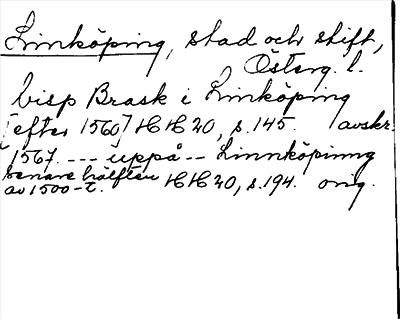 Linköping, stad och stift,
Österg. l.
bisp Brask i Linköping
[efter 1560] HH 20, s. 145. avskr.
1567. --- uppå -- Linnköpinng
senare hälften
av 1500-t. HH 20, s. 194. orig.